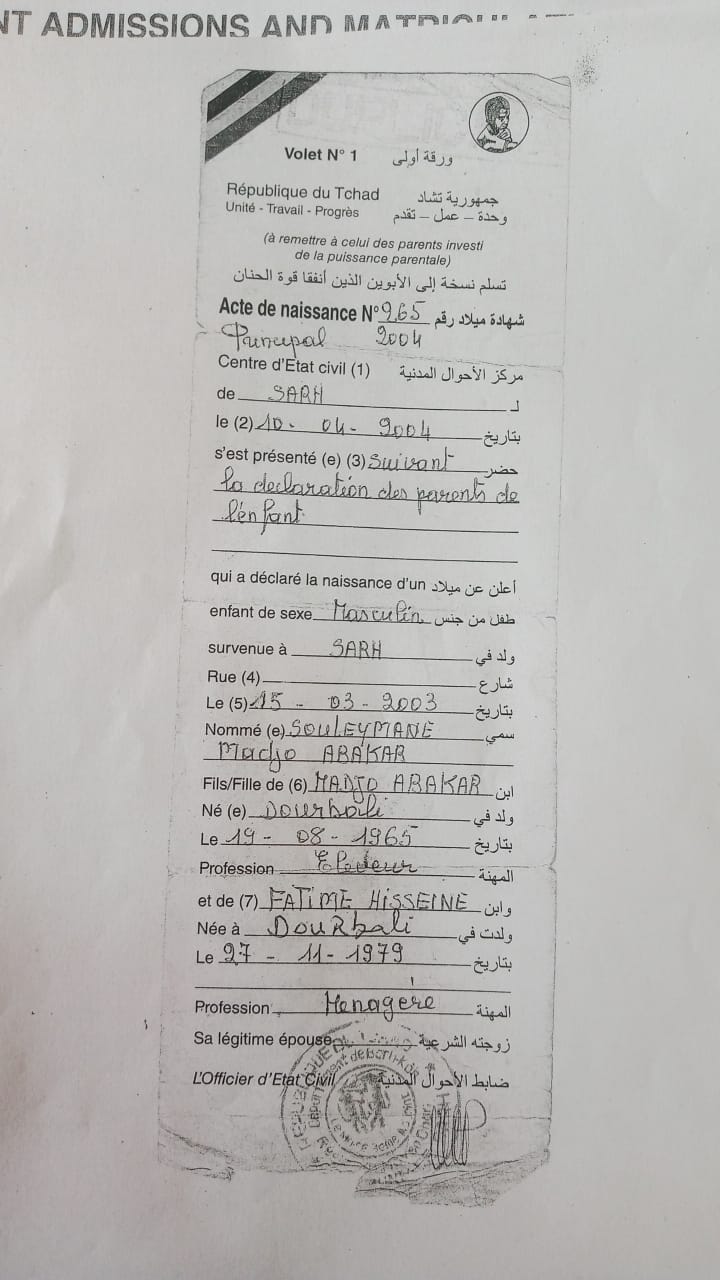 NT ADMISSIONS AND
Volet N° 1 ورقة أولى
République du Tchad جمهورية تشاد
Unité - Travail - Progrès وحدة – عمل – تقدم
(à remettre à celui des parents investi
de la puissance parentale)
تسلم نسخة إلى الأبوين الذين أنفقا قوة الحنان
Acte de naissance N° 965 شهادة ميلاد رقم
Principal 2004
Centre d'Etat civil (1) مركز الأحوال المدنية
de SARH لـ
le (2) 10 - 04 - 2004 بتاريخ
s'est présenté (e) (3) Suivant حضر
la declaration des parents de
l'enfant
qui a déclaré la naissance d'un أعلن عن ميلاد
enfant de sexe Masculin طفل من جنس
survenue à SARH ولد في
Rue (4) شارع
Le (5) 15 - 03 - 2003 بتاريخ
Nommé (e) SOULEYMANE سمي
Madjo ABAKAR
Fils/Fille de (6) MADJO ABAKAR ابن
Né (e) Dourbali ولد في
Le 19 - 08 - 1965 بتاريخ
Profession Eleveur المهنة
et de (7) FATIME HISSEINE وابن
Née à DOURbali ولدت في
Le 27 - 11 - 1979 بتاريخ
Profession Menagere المهنة
Sa légitime épouse زوجته الشرعية
L'Officier d'Etat Civil ضابط الأحوال المدنية